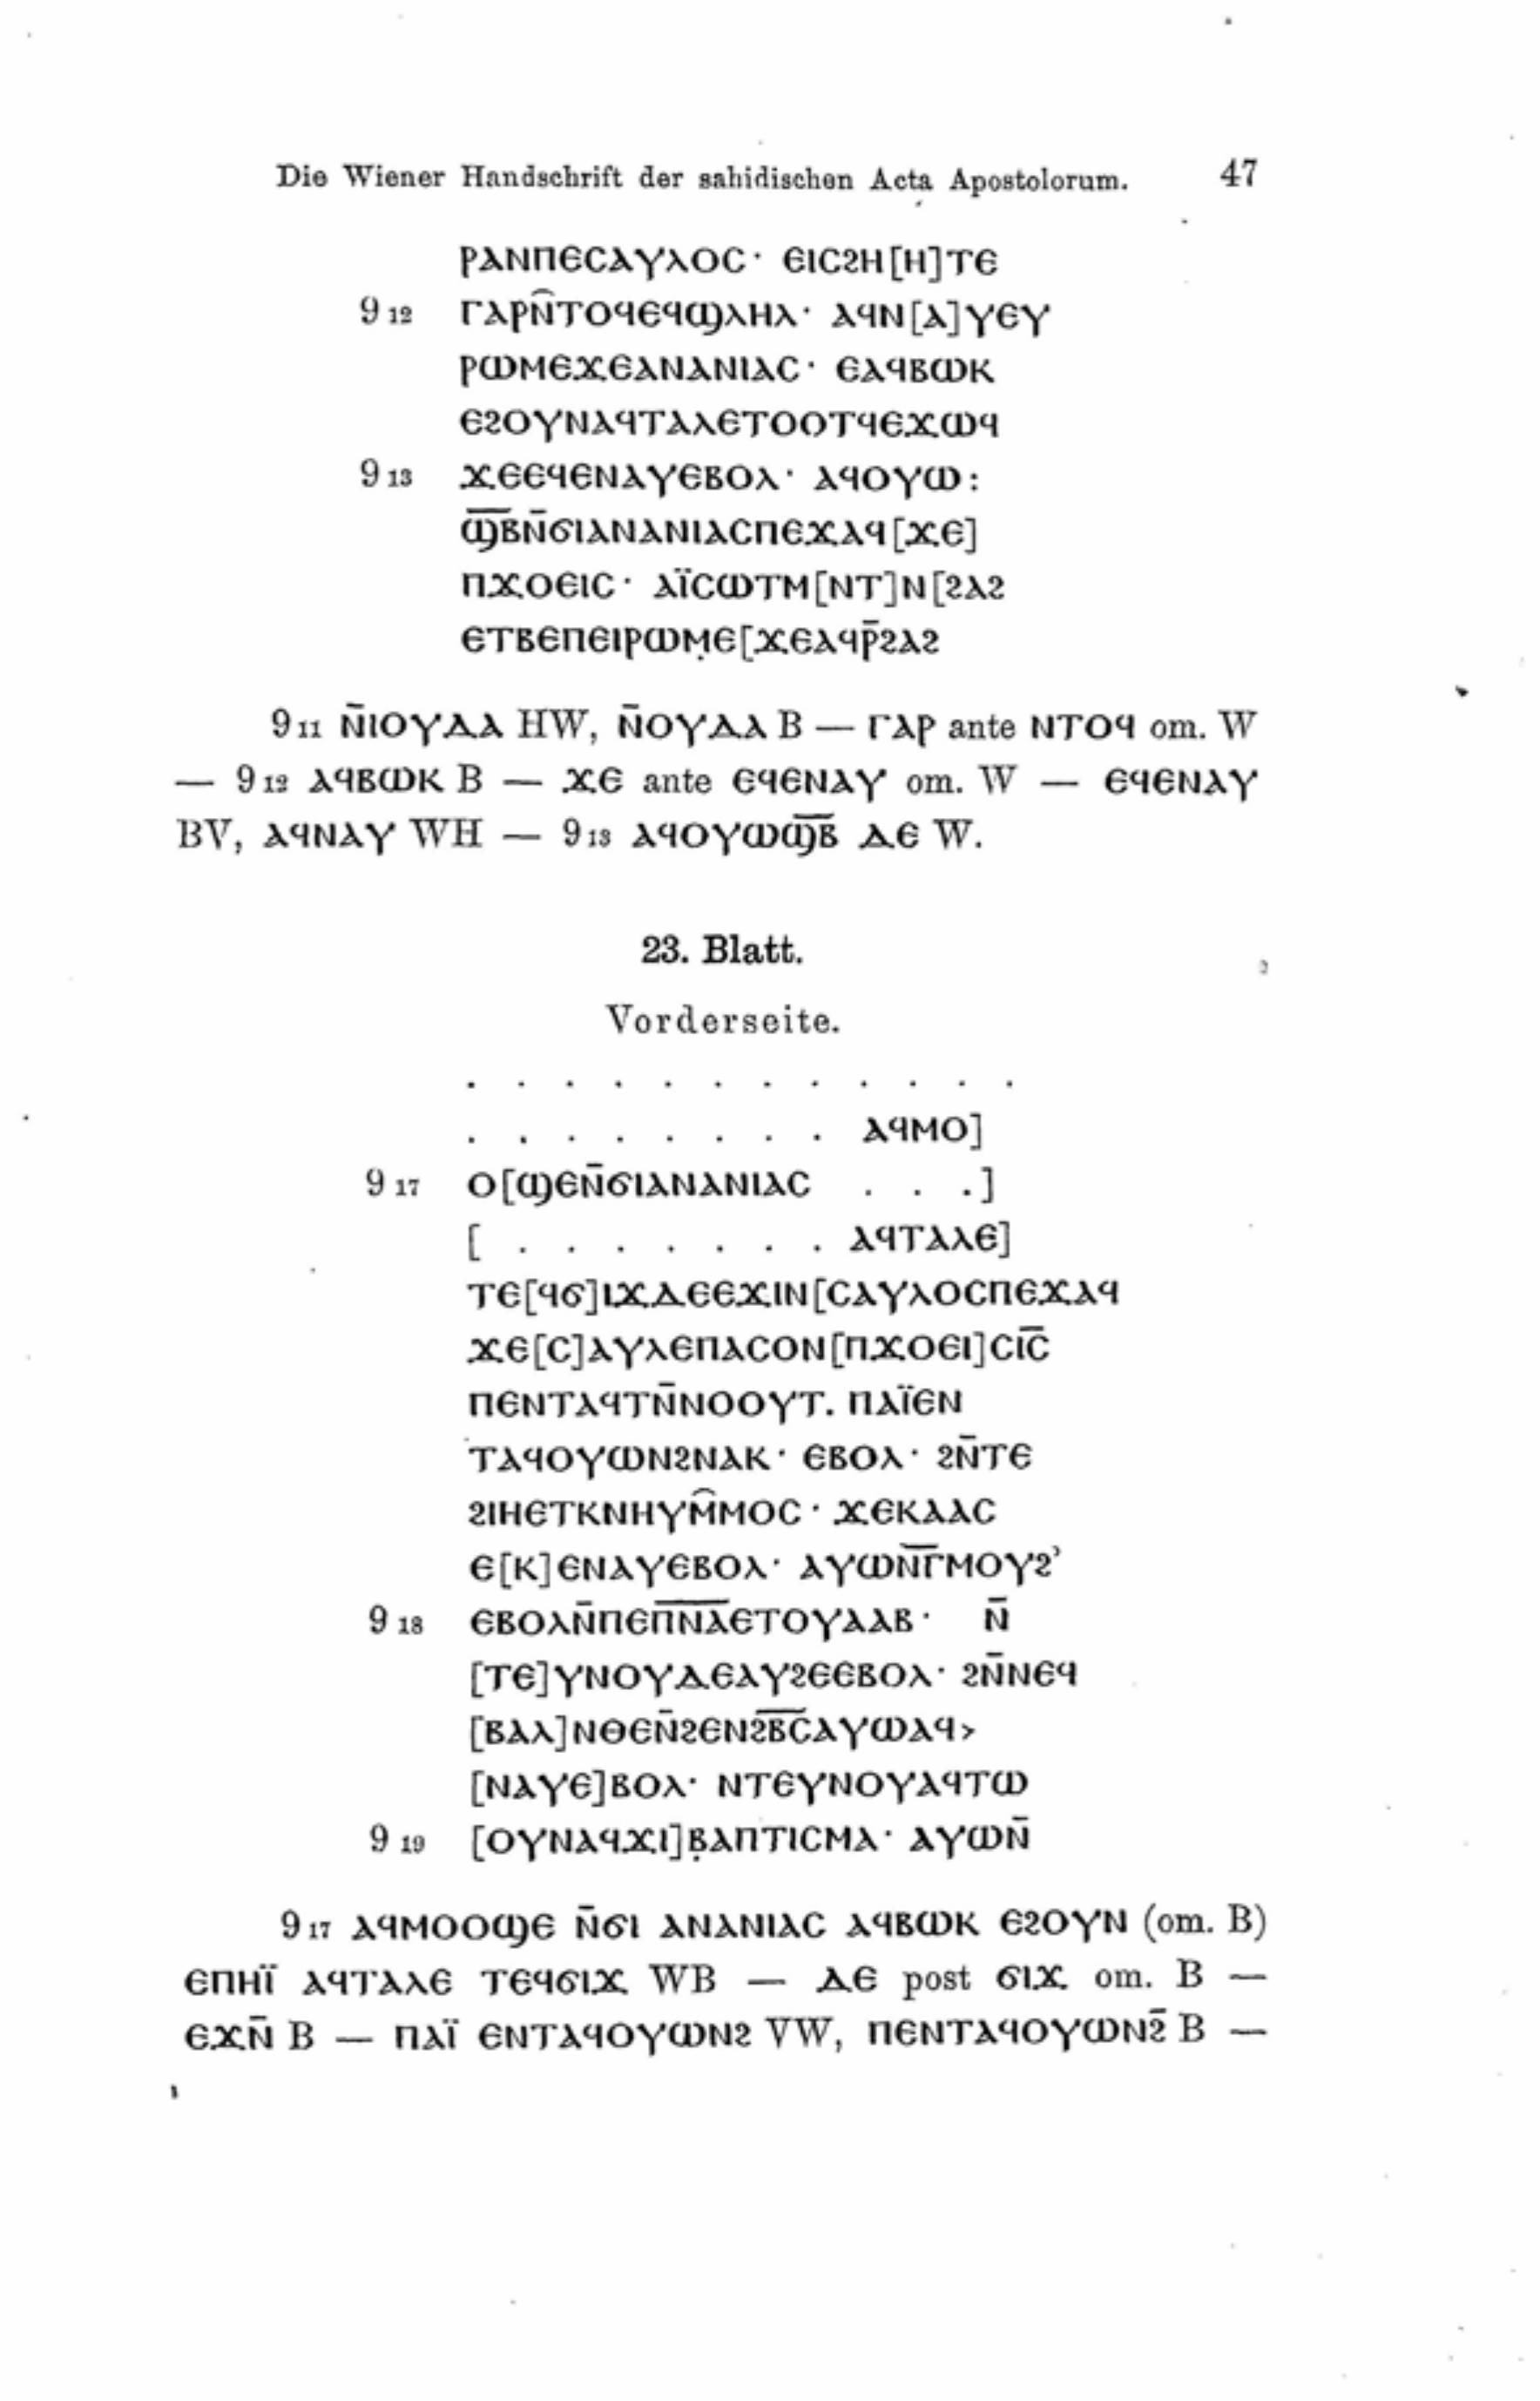 Die Wiener Handschrift der sahidischen Acta Apostolorum. 47
ⲣⲁⲛⲡⲉⲥⲁⲩⲗⲟⲥ· ⲉⲓⲥϩⲏ[ⲏ]ⲧⲉ
9 12 ⲅⲁⲣⲛ̑ⲧⲟϥⲉϥϣⲗⲏⲗ· ⲁϥⲛ[ⲁ]ⲩⲉⲩ
ⲣⲱⲙⲉϫⲉⲁⲛⲁⲛⲓⲁⲥ· ⲉⲁϥⲃⲱⲕ
ⲉϩⲟⲩⲛⲁϥⲧⲁⲗⲉⲧⲟⲟⲧϥⲉϫⲱϥ
9 13 ϫⲉⲉϥⲉⲛⲁⲩⲉⲃⲟⲗ· ⲁϥⲟⲩⲱ:
ϣ̅ⲃ̅ⲛ̄ϭⲓⲁⲛⲁⲛⲓⲁⲥⲡⲉϫⲁϥ[ϫⲉ]
ⲡϫⲟⲉⲓⲥ· ⲁⲓ̈ⲥⲱⲧⲙ[ⲛⲧ]ⲛ[ϩⲁϩ
ⲉⲧⲃⲉⲡⲉⲓⲣⲱⲙ̣ⲉ[ϫⲉⲁϥⲣ̄ϩⲁϩ
9 11 ⲛ̄ⲓⲟⲩⲇⲁ HW, ⲛ̄ⲟⲩⲇⲁ B — ⲅⲁⲣ ante ⲛⲧⲟϥ om. W
— 9 12 ⲁϥⲃⲱⲕ B — ϫⲉ ante ⲉϥⲉⲛⲁⲩ om. W — ⲉϥⲉⲛⲁⲩ
BV, ⲁϥⲛⲁⲩ WH — 9 13 ⲁϥⲟⲩⲱϣ̅ⲃ̅ ⲇⲉ W.
23. Blatt.
Vorderseite.
. . . . . . . . . . . .
. . . . . . . . ⲁϥⲙⲟ]
9 17 ⲟ[ϣⲉⲛ̄ϭⲓⲁⲛⲁⲛⲓⲁⲥ . . .]
[ . . . . . . . ⲁϥⲧⲁⲗⲉ]
ⲧⲉ[ϥϭ]ⲓϫⲇⲉⲉϫⲓⲛ[ⲥⲁⲩⲗⲟⲥⲡⲉϫⲁϥ
ϫⲉ[ⲥ]ⲁⲩⲗⲉⲡⲁⲥⲟⲛ[ⲡϫⲟⲉⲓ]ⲥⲓ̅ⲥ̅
ⲡⲉⲛⲧⲁϥⲧⲛ̄ⲛⲟⲟⲩⲧ. ⲡⲁⲓ̈ⲉⲛ
ⲧⲁϥⲟⲩⲱⲛϩⲛⲁⲕ· ⲉⲃⲟⲗ· ϩⲛ̄ⲧⲉ
ϩⲓⲏⲉⲧⲕⲛⲏⲩⲙ̑ⲙⲟⲥ· ϫⲉⲕⲁⲁⲥ
ⲉ[ⲕ]ⲉⲛⲁⲩⲉⲃⲟⲗ· ⲁⲩⲱⲛ̅ⲅ̅ⲙⲟⲩϩ’
9 18 ⲉⲃⲟⲗⲛ̄ⲡⲉⲡ̅ⲛ̅ⲁ̅ⲉⲧⲟⲩⲁⲁⲃ· ⲛ̄
[ⲧⲉ]ⲩⲛⲟⲩⲇⲉⲁⲩϩⲉⲉⲃⲟⲗ· ϩⲛ̄ⲛⲉϥ
[ⲃⲁⲗ]ⲛⲑⲉⲛ̄ϩⲉⲛϩ̅ⲃ̅ⲥ̅ⲁⲩⲱⲁϥ>
[ⲛⲁⲩⲉ]ⲃⲟⲗ· ⲛⲧⲉⲩⲛⲟⲩⲁϥⲧⲱ
9 19 [ⲟⲩⲛⲁϥϫⲓ]ⲃ̣ⲁⲡⲧⲓⲥⲙⲁ· ⲁⲩⲱⲛ̄
9 17 ⲁϥⲙⲟⲟϣⲉ ⲛ̄ϭⲓ ⲁⲛⲁⲛⲓⲁⲥ ⲁϥⲃⲱⲕ ⲉϩⲟⲩⲛ (om. B)
ⲉⲡⲏⲓ̈ ⲁϥⲧⲁⲗⲉ ⲧⲉϥϭⲓϫ WB — ⲇⲉ post ϭⲓϫ om. B —
ⲉϫⲛ̄ B — ⲡⲁⲓ̈ ⲉⲛⲧⲁϥⲟⲩⲱⲛϩ VW, ⲡⲉⲛⲧⲁϥⲟⲩⲱⲛϩ̄ B —